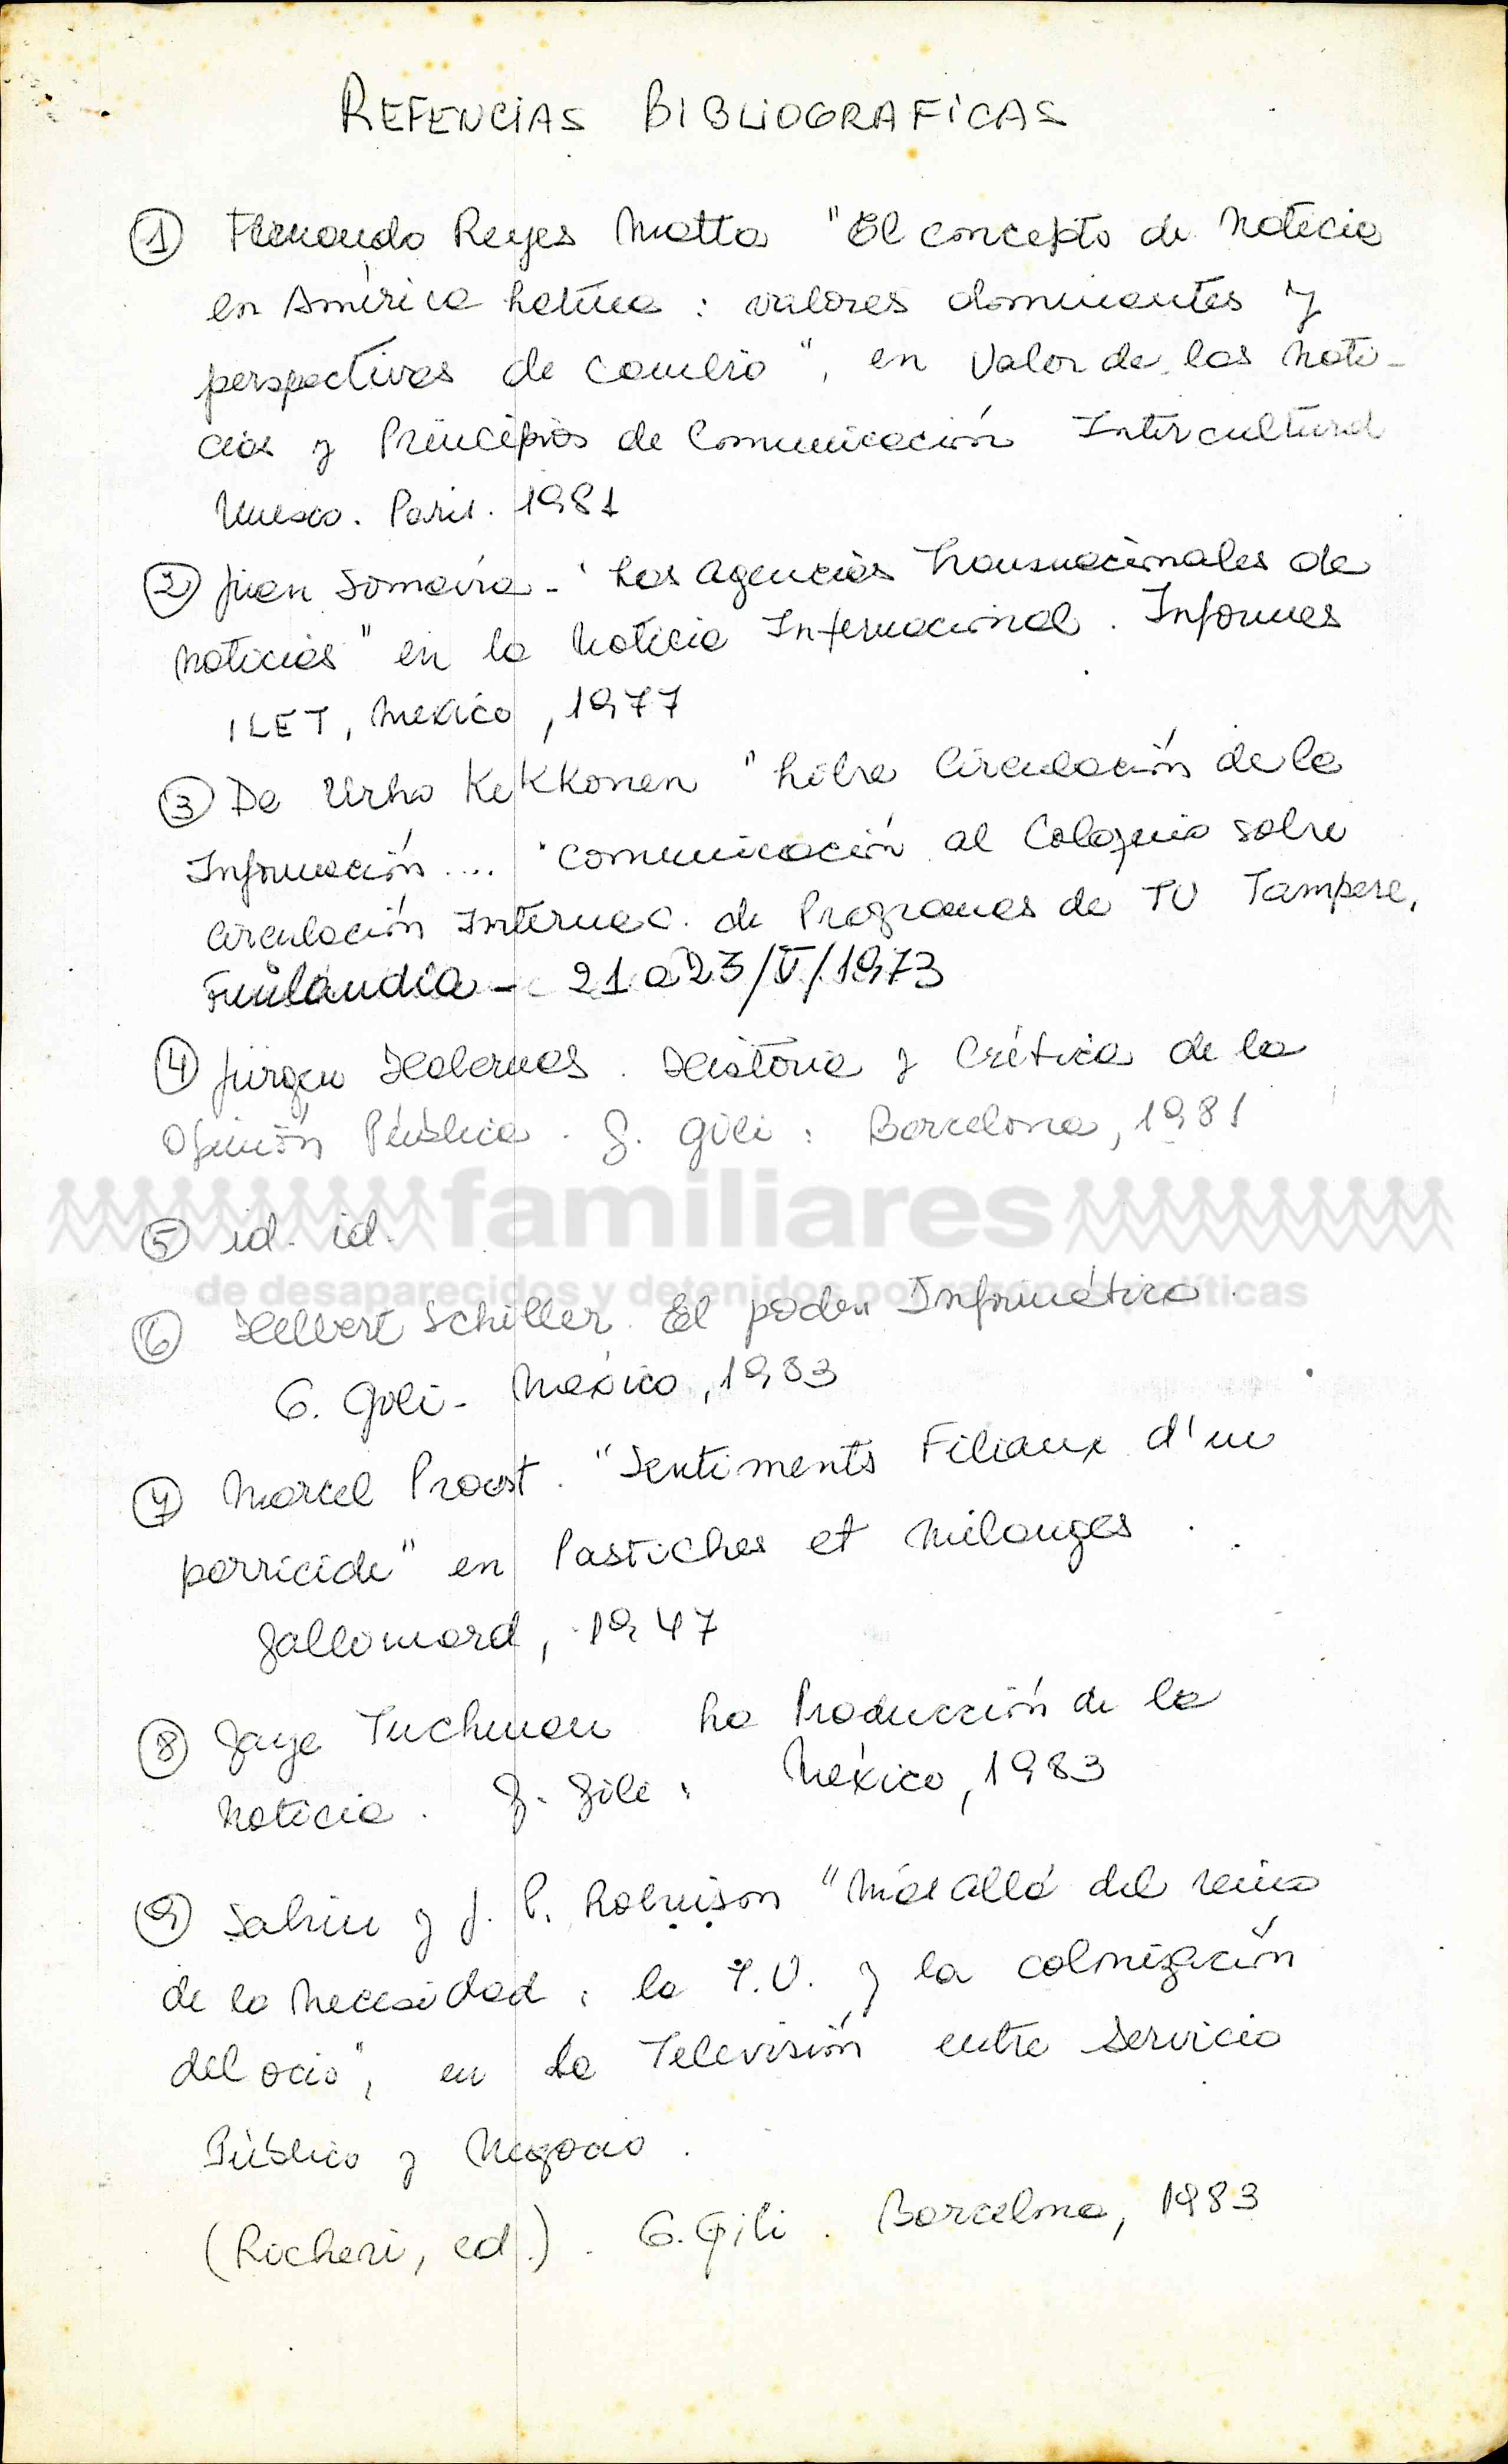 REFENCIAS BIBLIOGRAFICAS
① Fernando Reyes Matta "El concepto de noticia
en América Latina : valores dominantes y
perspectivas de cambio", en Valor de las Noti-
cias y Principios de Comunicación Intercultural
Unesco. Paris. 1981
② Juan Somavía - "Las agencias Transnacionales de
noticias" en la Noticia Internacional. Informes
ILET, Mexico, 1977
③ De Urho Kekkonen "Libre Circulación de la
Información.... "Comunicación al Coloquio sobre
Circulación Internac. de Programas de TV Tampere,
Finlandia - 21 a 23/V/1973
④ Jürgen Habermas. Historia y Crítica de la
Opinión Pública. G. Gili : Barcelona, 1981
familiares
⑤ id. id.
de desaparecidos y detenidos por razones políticas
⑥ Herbert Schiller. El poder Informático.
G. Gili - México, 1983
⑦ Marcel Proust. "Sentiments Filiaux d'un
parricide" en Pastiches et Mélanges.
Gallimard, 1947
⑧ Gaye Tuchman La Producción de la
Noticia. G. Gili : México, 1983
⑨ Sahin y J. P. Robinson "Más allá del reino
de la Necesidad : la T.V. y la colonización
del ocio", en La Televisión entre Servicio
Público y Negocio.
(Richeri, ed.). G. Gili. Barcelona, 1983